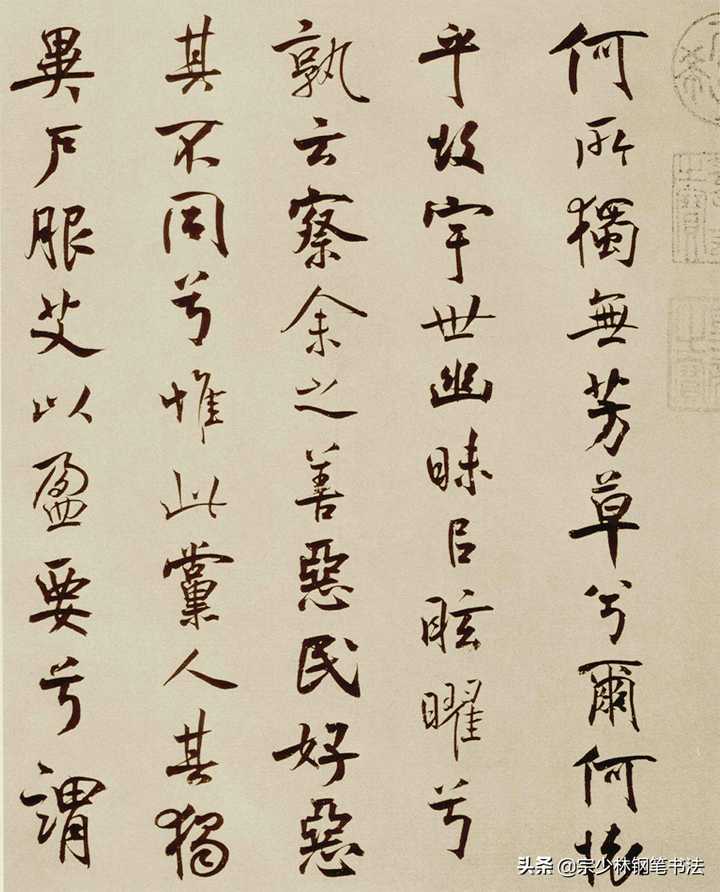 何所獨無芳草兮爾何懷
乎故宇世幽昧㠯眩曜兮
孰云察余之善惡民好惡
其不同兮惟此黨人其獨
異戶服艾以盈要兮謂
头条 @宗少林钢笔书法